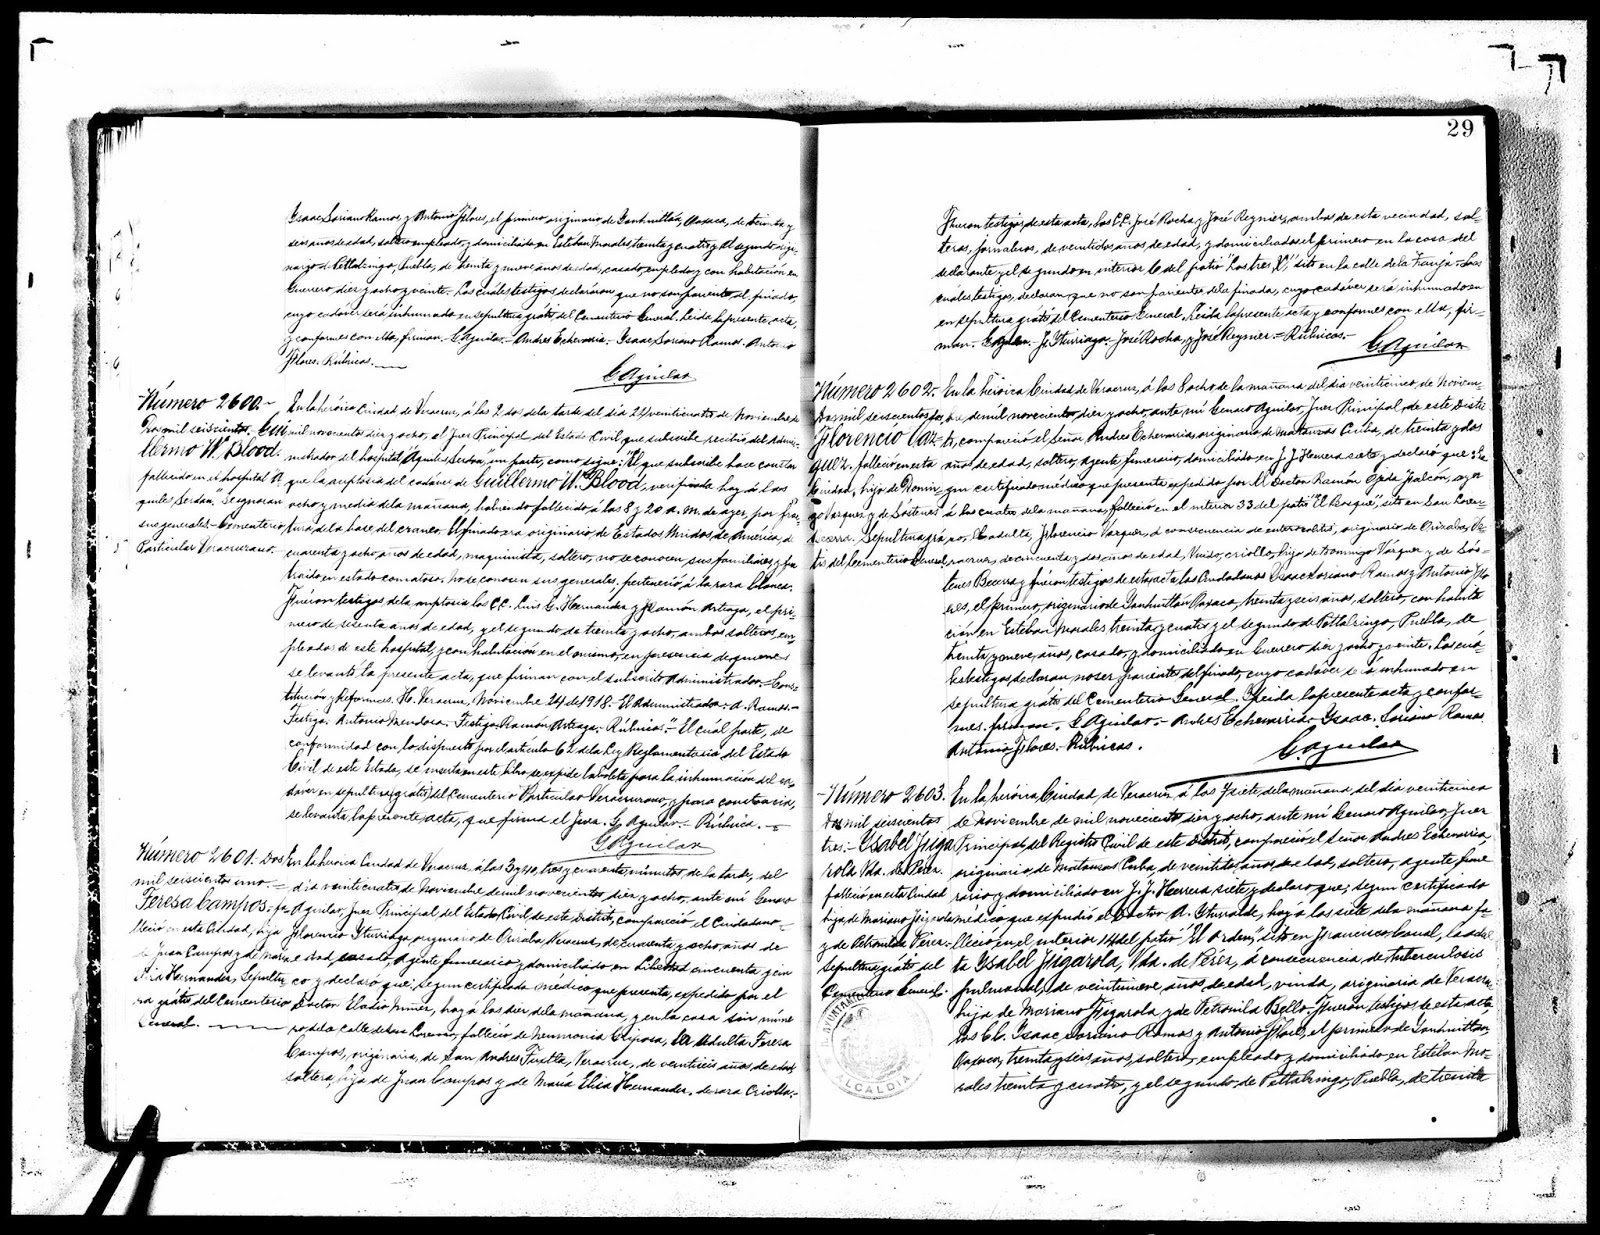 29
Isaac Soriano Ramos y Antonio Flores, el primero originario de Oaxaca, de treinta y
seis años de edad, soltero empleado y domiciliado en Esteban Morales, treinta y cuatro y el segundo origi-
nario de Puebla, de treinta y nueve años de edad, casado, empleado y con habitación en
Guerrero diez y ocho y veinte. Los cuáles testigos declararon que no son parientes del finado,
cuyo cadáver será inhumado en sepultura gratis del Cementerio General. Leída la presente acta,
y conformes con ella, firman. G Aguilar.- Andrés Echevarria.- Isaac Soriano Ramos. Antonio
Flores. Rúbricas.
G Aguilar
-Número 2600.-
Dos mil seiscientos. Gui
llermo W. Blood.
fallecido en el hospital "A
quiles Serdán". Se ignoran
sus generales. Cementerio
Particular Veracruzano.
En la heróica Ciudad de Veracruz, á las 2 dos de la tarde del día 24 veinticuatro de Noviembre de
mil novecientos diez y ocho, el Juez Principal del Estado Civil que subscribe recibió del Admi-
nistrador del hospital "Aquiles Serdán", un parte, como sigue: "El que subscribe hace constar
que la autopsia del cadáver de Guillermo W. Blood, verificada hoy á las
ocho y media de la mañana, habiendo fallecido á las 8 y 20 a. m. de ayer, por frac-
tura de la base del craneo. El finado era originario de Estados Unidos de América, de
cuarenta y ocho años de edad, maquinista, soltero, no se conocen sus familiares y fue
traido en estado comatoso. No se conocen sus generales, perteneció á la raza blanca.
Fueron testigos de la autopsia los C.C. Luis G. Hernandez y Ramón Arteaga, el pri-
mero de sesenta años de edad, y el segundo de treinta y ocho, ambos solteros, em-
pleados de este hospital, y con habitación en el mismo, en presencia de quienes
se levantó la presente acta, que firman con el suscrito Administrador.- Cons-
titución y Reformas. H. Veracruz, Noviembre 24 de 1918. El Administrador. A. Ramos.-
Testigo. Antonio Mendoza. Testigo. Ramón Arteaga. Rúbricas".- El cuál parte, de
conformidad con lo dispuesto por el artículo 62 de la Ley Reglamentaria del Estado
Civil de este Estado, se inserta en este libro, se expide la boleta para la inhumación del ca-
daver en sepultura (gratis) del Cementerio Particular Veracruzano, y para constancia,
se levanta la presente acta, que firma el Juez. G Aguilar.- Rúbrica.
G Aguilar
Número 2601. Dos
mil seiscientos uno.-
Teresa Campos. fa
lleció en esta Ciudad, hija
de Juan Campos y de María
Elia Hernandez, Sepultu
ra gratis del Cementerio
General.
En la heróica Ciudad de Veracruz, á las 3 y 40 tres y cuarenta minutos de la tarde, del
día veinticuatro de Noviembre de mil novecientos diez y ocho, ante mí Genaro
Aguilar, Juez Principal del Estado Civil, de este Distrito, compareció el Ciudadano
Florencio Iturriaga, originario de Orizaba, Veracruz, de cuarenta y ocho años de
edad, casado, Agente funerario y domiciliado en Libertad cincuenta y cin
co y declaró que: según certificado médico que presenta, expedido por el
Doctor Eladio Nuñez, hoy á las diez de la mañana, y en la casa sin núme
ro, de la calle de San Lorenzo, falleció de Neumonía Griposa, la Adulta Teresa
Campos, originaria, de San Andrés Tuxtla, Veracruz, de veintiséis años de edad
soltera, hija de Juan Campos y de María Elia Hernandez, de raza Criolla.-
Fueron testigos de esta acta, los C.C. José Rocha y José Reynier, ambos de esta vecindad, sol-
teros, jornaleros, de veintidos años de edad, y domiciliados el primero en la casa del
declarante y el segundo en interior 6 del patio "Las tres X", sito en la calle de la Zanja.- Los
cuáles testigos, declaran, que no son parientes de la finada, cuyo cadáver será inhumado en
en sepultura gratis del Cementerio General. Leída la presente acta y conformes con ella, fir-
man. G Aguilar.- F. Iturriaga.- José Rocha, y José Reynier.- Rúbricas.-
G Aguilar
Número 2602.-
Dos mil seiscientos dos
Florencio Váz-
quez. falleció en esta
Ciudad, hijo de Domin
go Vazquez y de Sóstenes
Becerra. Sepultura gra
tis del Cementerio General
En la heróica Ciudad de Veracruz, á las 8 ocho de la mañana del día veinticinco, de Noviem-
bre, de mil novecientos diez y ocho, ante mí Genaro Aguilar, Juez Principal, de este Distri
to, compareció el Señor Andrés Echevarria, originario de Matanzas Cuba, de treinta y dos
años de edad, soltero, agente funerario, domiciliado en J. J. Herrera siete y declaró que: Se
gún certificado médico que presenta expedido por el Doctor Ramón Ojeda Falcón, ayer
á las cuatro de la mañana, falleció en el interior 33 del patio "El Bosque", sito en San Loren-
zo, el adulto, Florencio Vázquez, á consecuencia de enterocolitis, originario de Orizaba, Ve-
racruz, de cincuenta y dos años de edad, Viudo, criollo, hijo de Domingo Vázquez y de Sós-
tenes Becerra, y fueron testigos de esta acta los Ciudadanos Isaac Soriano Ramos y Antonio Flo
res, el primero, originario de Oaxaca, treinta y seis años, soltero, con habita
ción en Esteban Morales treinta y cuatro y el segundo de Puebla, de
treinta y nueve, años, casado, y domiciliado en Guerrero diez y ocho y veinte. Los cuá
les testigos declaran no ser parientes del finado, cuyo cadáver será inhumado en
sepultura gratis del Cementerio General. Leída la presente acta y confor-
mes. firman. G Aguilar.- Andrés Echevarria.- Isaac. Soriano Ramos.
Antonio Flores.- Rúbricas.
G. Aguilar
-Número 2603.
Dos mil seiscientos
tres.- Ysabel Jiga
rola Vda. de Pérez.
falleció en esta Ciudad
hija de Mariano Jigarola
y de Petronila Pérez.-
Sepultura gratis del
Cementerio General.
En la heróica Ciudad de Veracruz á las 7 siete de la mañana del día veinticinco
de Noviembre de mil novecientos diez y ocho, ante mí Genaro Aguilar, Juez
Principal, del Registro Civil de este Distrito, compareció el señor Andrés Echevarria,
originario, de Matanzas Cuba, de veintidos, años, de edad, soltero, agente fune
rario y domiciliado en J. J. Herrera siete y declaro que; según certificado
médico que expendió el Doctor A. Iturralde, hoy á las siete de la mañana fa-
lleció en el interior 14 del patio "El orden", sito en Francisco Canal, la adul
ta Ysabel Jigarola, Vda. de Pérez, á consecuencia de Tuberculosis
Pulmonal, de veintinueve años de edad, viuda, originaria de Veracruz
hija de Mariano Jigarola, y de Petronila Bello. Fueron testigos de esta acta,
los CC. Isaac Soriano Ramos y Antonio Flores, el primero de
Oaxaca, treinta y seis años, soltero, empleado y domiciliado en Esteban Mo-
rales treinta y cuatro, y el segundo de Puebla, de treinta
ALCALDIA